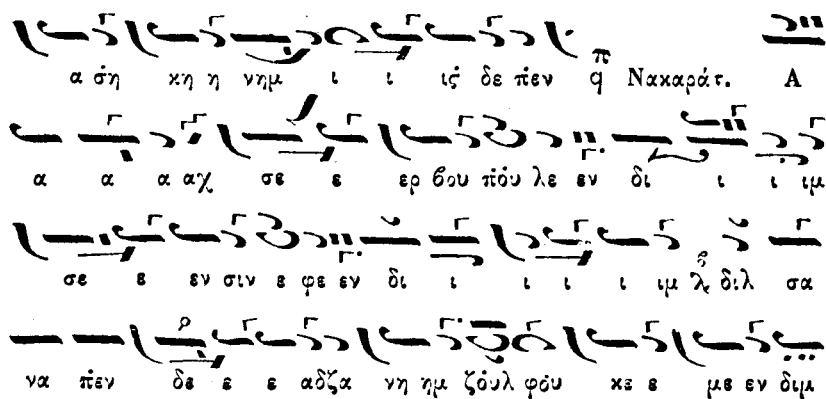 α ση κη η νημ ι ι ις δε πεν π q Νακαράτ. Α
α α α αχ σε ε ερ βου πουλε εν δι ι ι ιμ
σε ε εν σιν ε φε εν δι ι ι ι ι ιμ διλ σα
να πεν δε ε ε αδζα νη ημ ζουλ φου κε ε με εν διμ